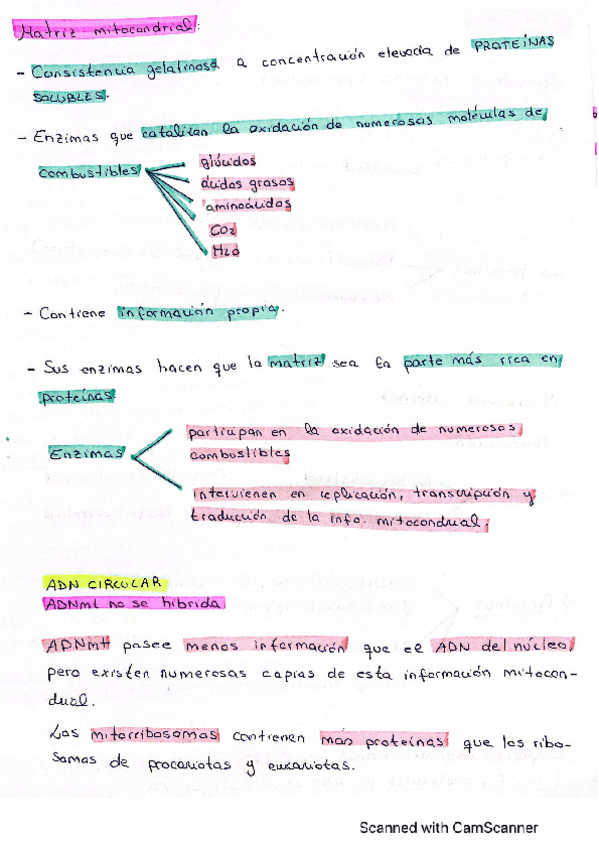 Matriz mitocondrial:
- Consistencia gelatinosa a concentración elevada de PROTEÍNAS
SOLUBLES.
- Enzimas que catalizan la oxidación de numerosas moléculas de
combustibles
glúcidos
ácidos grasos
aminoácidos
CO2
H2O
- Contiene información propia.
- Sus enzimas hacen que la matriz sea la parte más rica en
proteínas
Enzimas
participan en la oxidación de numerosos
combustibles
intervienen en replicación, transcripción y
traducción de la info. mitocondrial.
ADN CIRCULAR
ADNmt no se hibrida
ADNmt posee menos información que el ADN del núcleo,
pero existen numerosas copias de esta información mitocon-
drial.
Los mitorribosomas contienen más proteínas que los ribo-
somas de procariotas y eucariotas.
Scanned with CamScanner